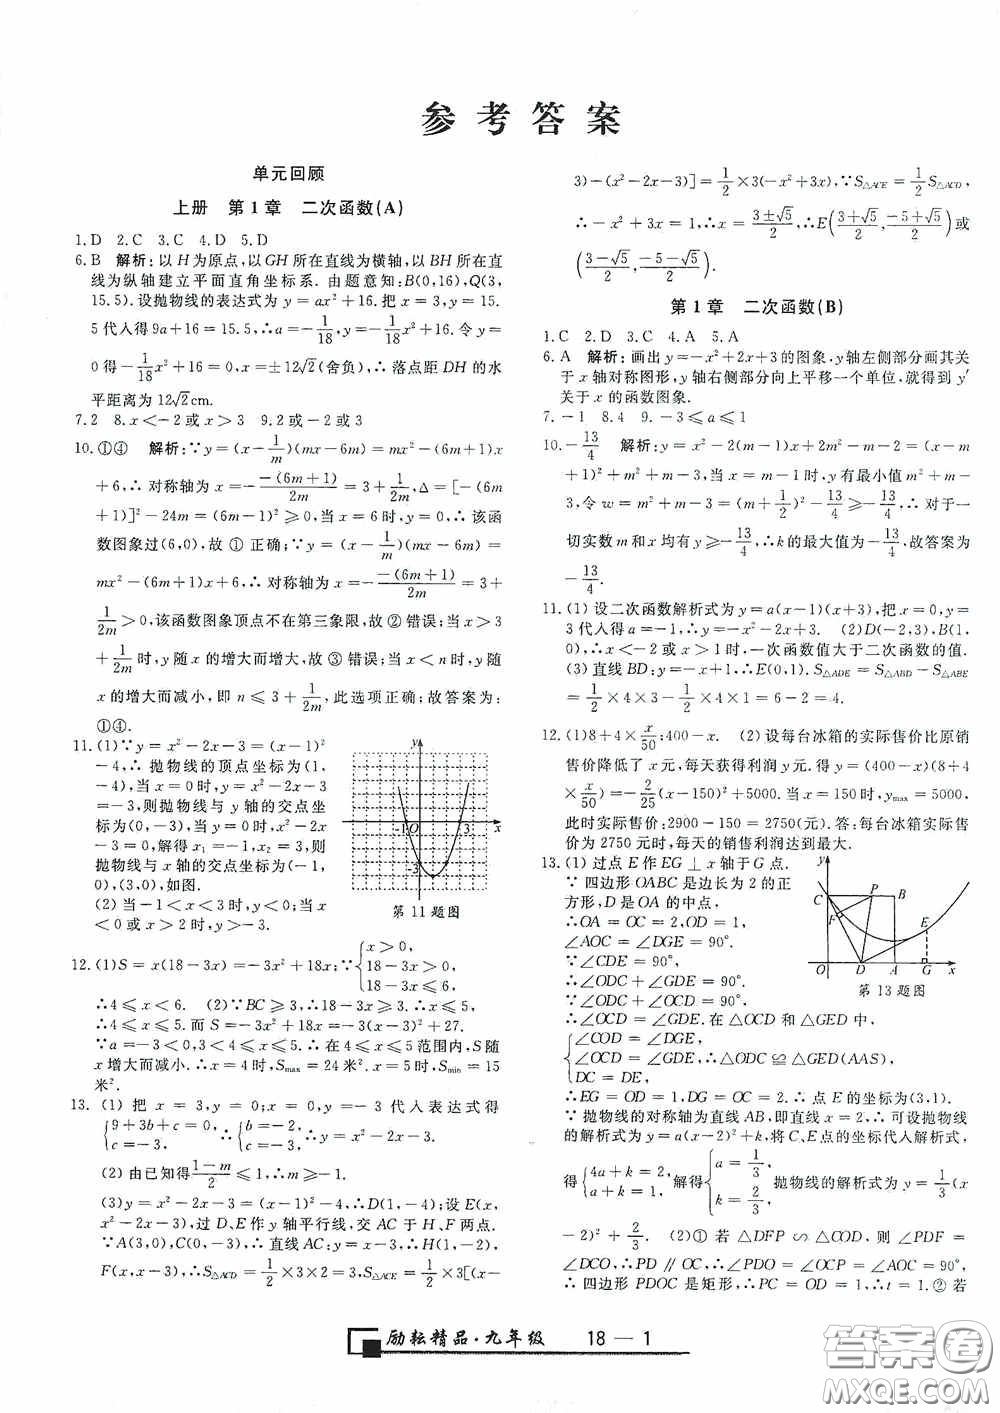 参考答案
单元回顾
上册 第1章 二次函数(A)
1.D 2.C 3.C 4.D 5.D
6.B 解析:以H为原点,以GH所在直线为横轴,以BH所在直
线为纵轴建立平面直角坐标系.由题意知:B(0,16),Q(3,
15.5).设抛物线的表达式为y=ax²+16.把y=15.
5代入得9a+16=15.5,∴a=-1/18,y=-1/18x²+16.令y=
0得-1/18x²+16=0,x=±12√2(舍负),∴落点距DH的水
平距离为12√2cm.
7.2 8.x<-2或x>3 9.2或-2或3
10.①④ 解析:∵y=(x-1/m)(mx-6m)=mx²-(6m+1)x
+6,∴对称轴为x=-(-(6m+1))/2m=3+1/2m,Δ=[-(6m
+1)]²-24m=(6m-1)²≥0,当x=6时,y=0,∴该函
数图象过(6,0),故①正确;∵y=(x-1/m)(mx-6m)=
mx²-(6m+1)x+6,∴对称轴为x=-(-(6m+1))/2m=3+
1/2m>0,该函数图象顶点不在第三象限,故②错误;当x>3
+1/2m时,y随x的增大而增大,故③错误;当x<n时,y随
x的增大而减小,即n≤3+1/2m,此选项正确;故答案为:
①④.
11.(1)∵y=x²-2x-3=(x-1)²
-4,∴抛物线的顶点坐标为(1,
-4),当x=0时,y=x²-2x-3
=-3,则抛物线与y轴的交点坐
标为(0,-3),当y=0时,x²-2x
-3=0,解得x₁=-1,x₂=3,则
抛物线与x轴的交点坐标为(-1,
0),(3,0),如图.
(2)当-1<x<3时,y<0;当x
<0或x>2时,y>-3.
y
-1 O 3 x
-3
第11题图
12.(1)S=x(18-3x)=-3x²+18x;∵{x>0, 18-3x>0, 18-3x≤6.
∴4≤x<6. (2)∵BC≥3,∴18-3x≥3,∴x≤5,
∴4≤x≤5.而S=-3x²+18x=-3(x-3)²+27.
∵a=-3<0,3<4≤x≤5,∴在4≤x≤5范围内,S随
x增大而减小.∴x=4时,Smax=24米². x=5时,Smin=15
米².
13.(1)把x=3,y=0;x=0,y=-3代入表达式得
{9+3b+c=0, c=-3. ∴{b=-2, c=-3. ∴y=x²-2x-3.
(2)由已知得(1-m)/2≥1,∴m≤-1.
(3)y=x²-2x-3=(x-1)²-4,∴D(1,-4);设E(x,
x²-2x-3),过D、E作y轴平行线,交AC于H、F两点.
∵A(3,0),C(0,-3),∴直线AC:y=x-3,∴H(1,-2),
F(x,x-3),∴S△ACD=1/2×3×2=3,S△ACE=1/2×3[(x-
3)-(x²-2x-3)]=1/2×3(-x²+3x),∵S△ACE=1/2S△ACD,
∴-x²+3x=1,∴x=(3±√5)/2,∴E((3+√5)/2,(-5+√5)/2)或
((3-√5)/2,(-5-√5)/2).
第1章 二次函数(B)
1.C 2.D 3.C 4.A 5.A
6.A 解析:画出y=-x²+2x+3的图象,y轴左侧部分画其关
于x轴对称图形,y轴右侧部分向上平移一个单位,就得到y′
关于x的函数图象.
7.-1 8.4 9.-3≤a≤1
10.-13/4 解析:∵y=x²-2(m-1)x+2m²-m-2=(x-m
+1)²+m²+m-3,当x=m-1时,y有最小值m²+m-
3,令w=m²+m-3=(m+1/2)²-13/4≥-13/4,∴对于一
切实数m和x均有y≥-13/4,∴k的最大值为-13/4,故答案为
-13/4.
11.(1)设二次函数解析式为y=a(x-1)(x+3),把x=0,y=
3代入得a=-1,∴y=-x²-2x+3. (2)D(-2,3),B(1,
0),∴x<-2或x>1时,一次函数值大于二次函数的值.
(3)直线BD:y=-x+1,∴E(0,1).S△ADE=S△ABD-S△ABE
=1/2×4×3-1/2×4×1=6-2=4.
12.(1)8+4×x/50;400-x. (2)设每台冰箱的实际售价比原销
售价降低了x元,每天获得利润y元.得y=(400-x)(8+4
×x/50)=-2/25(x-150)²+5000.当x=150时,ymax=5000,
此时实际售价:2900-150=2750(元).答:每台冰箱实际售价
为2750元时,每天的销售利润达到最大.
13.(1)过点E作EG⊥x轴于G点.
∵四边形OABC是边长为2的正
方形,D是OA的中点,
∴OA=OC=2,OD=1,
∠AOC=∠DGE=90°.
∵∠CDE=90°,
∴∠ODC+∠GDE=90°.
∵∠ODC+∠OCD=90°,
∴∠OCD=∠GDE.在△OCD和△GED中,
{∠COD=∠DGE, ∠OCD=∠GDE, DC=DE, ∴△ODC≌△GED(AAS),
y
C P B
F E
O D A G x
第13题图
∴EG=OD=1,DG=OC=2.∴点E的坐标为(3.1).
∵抛物线的对称轴为直线AB,即直线x=2,∴可设抛物线
的解析式为y=a(x-2)²+k,将C、E点的坐标代入解析式,
得{4a+k=2, a+k=1. 解得{a=1/3, k=2/3. 抛物线的解析式为y=1/3(x
-2)²+2/3. (2)①若△DFP∽△COD,则∠PDF=
∠DCO,∴PD∥OC,∴∠PDO=∠OCP=∠AOC=90°,
∴四边形PDOC是矩形,∴PC=OD=1,∴t=1.②若
励耘精品·九年级 18—1
答案圈
MXQE.COM